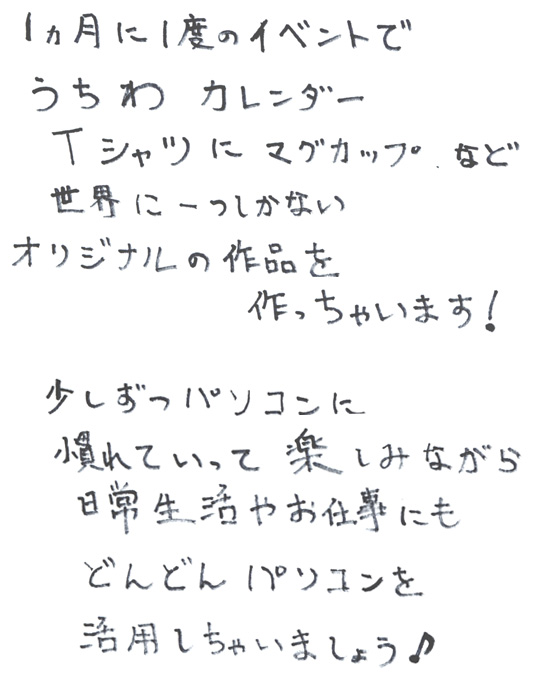 1ヵ月に1度のイベントで
うちわ カレンダー
Tシャツに マグカップ.など
世界に一つしかない
オリジナルの作品を
作っちゃいます!
少しずつパソコンに
慣れていって 楽しみながら
日常生活やお仕事にも
どんどんパソコンを
活用しちゃいましょう♪